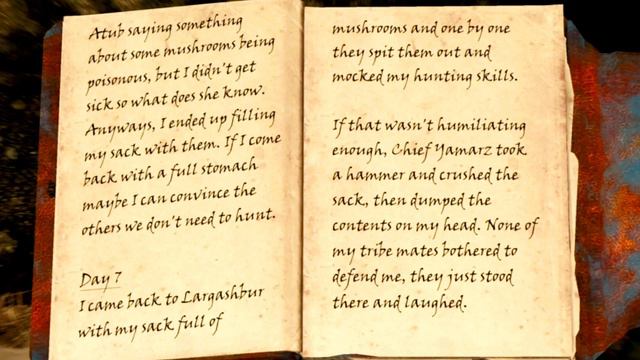 Atub saying something
about some mushrooms being
poisonous, but I didn't get
sick so what does she know.
Anyways, I ended up filling
my sack with them. If I come
back with a full stomach
maybe I can convince the
others we don't need to hunt.
Day 7
I came back to Largashbur
with my sack full of
mushrooms and one by one
they spit them out and
mocked my hunting skills.
If that wasn't humiliating
enough, Chief Yamarz took
a hammer and crushed the
sack, then dumped the
contents on my head. None of
my tribe mates bothered to
defend me, they just stood
there and laughed.